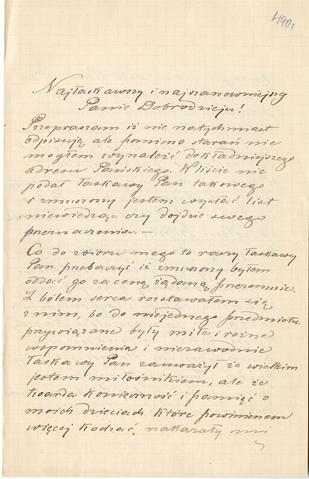 490,
Najłaskawszy i najszanowniejszy
Panie Dobrodzieju!
Przepraszam iż nie natychmiast
odpisuję ale pomimo starań nie
mogłem wynaleźć dokładniejszego
adresu Pańskiego. W liście nie
podał Łaskawy Pan takowego
i zmuszony jestem wysłać list
niewiedząc czy dojdzie swego
przeznaczenia. —
Co do zbioru mego to raczy Łaskawy
Pan przebaczyć iż zmuszony byłem
oddać go za cenę żądaną przezemnie.
Z bólem serca rozstawałem się
z nim, bo do niejednego przedmiotu
przywiązane były miłe i różne
wspomnienia i niezawodnie
Łaskawy Pan zauważył że wielkim
jestem miłośnikiem, ale że
twarda konieczność i pamięć o
moich dzieciach które powinienem
więcej kochać, nakazały mi